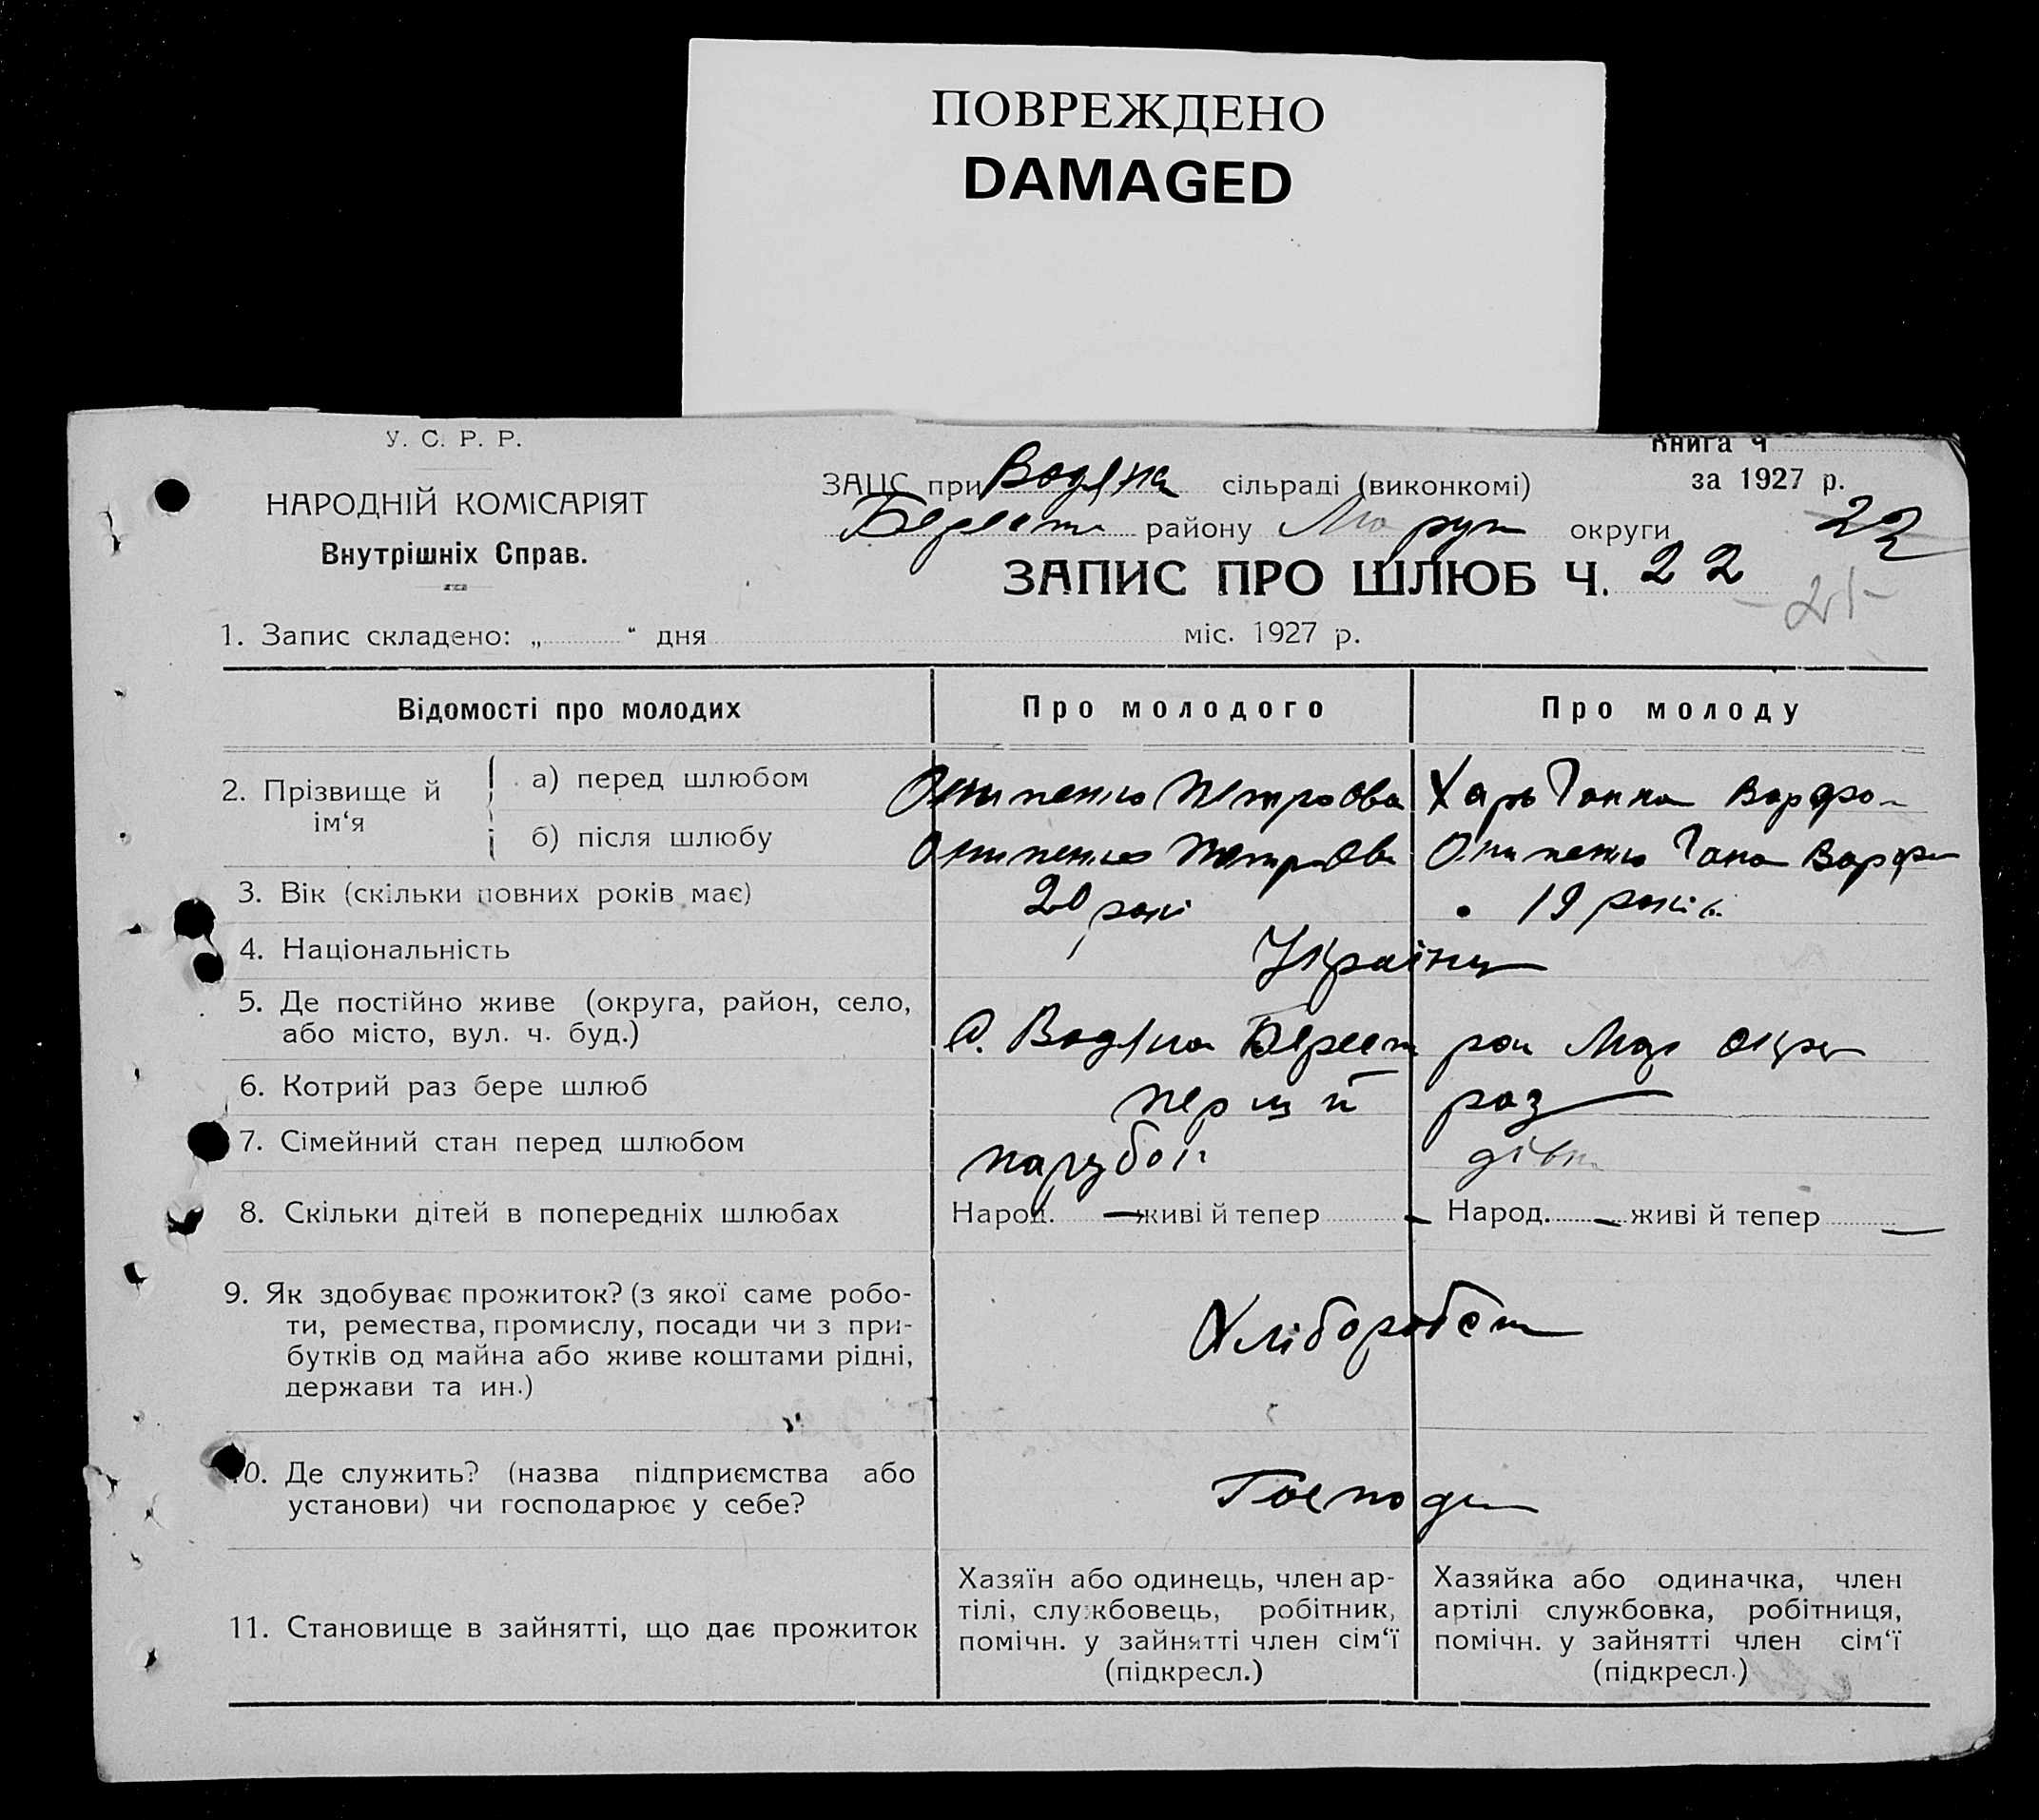 ПОВРЕЖДЕНО
DAMAGED
У. С. Р. Р.
НАРОДНІЙ КОМІСАРІЯТ
Внутрішніх Справ.
Книга Ч
за 1927 р.
ЗАЦС при Водяна сільраді (виконкомі)
Берест району Маруп округи
22
ЗАПИС ПРО ШЛЮБ Ч. 22
-21-
1. Запис складено: „ “ дня міс. 1927 р.
Відомості про молодих Про молодого Про молоду
2. Прізвище й ім‘я
а) перед шлюбом Харь Ганна Варфо
б) після шлюбу Гана Варф
3. Вік (скільки повних років має) 20 рокі 19 років
4. Національність Українц
5. Де постійно живе (округа, район, село,
або місто, вул. ч. буд.) С. Водяна Берест рай Мар окру
6. Котрий раз бере шлюб перший раз
7. Сімейний стан перед шлюбом парубок дівк
8. Скільки дітей в попередніх шлюбах Народ. — живі й тепер — Народ. — живі й тепер —
9. Як здобуває прожиток? (з якої саме робо-
ти, ремества, промислу, посади чи з при-
бутків од майна або живе коштами рідні,
держави та ин.) Хліборобст
10. Де служить? (назва підприємства або
установи) чи господарює у себе? Господ
11. Становище в зайнятті, що дає прожиток
Хазяїн або одинець, член ар-
тілі, службовець, робітник,
помічн. у зайнятті член сім‘ї
(підкресл.)
Хазяйка або одиначка, член
артілі службовка, робітниця,
помічн. у зайнятті член сім‘ї
(підкресл.)